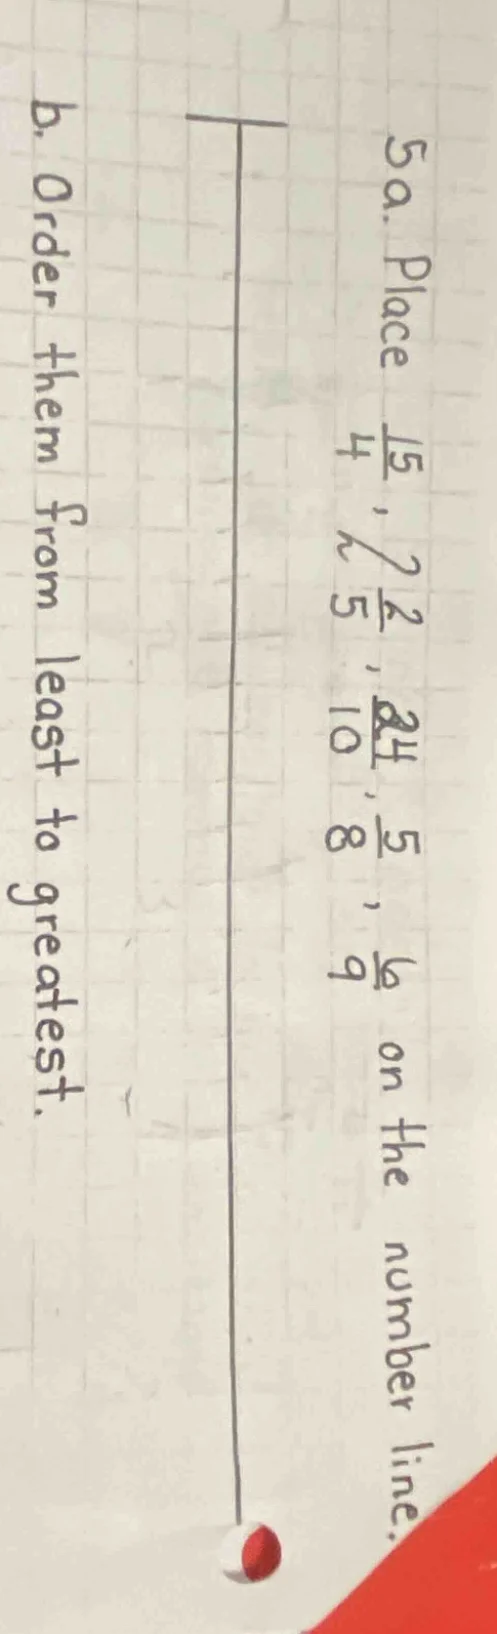 5a. Place 15/4, 2 2/5, 24/10, 5/8, 6/9 on the number line.
b. Order them from least to greatest.